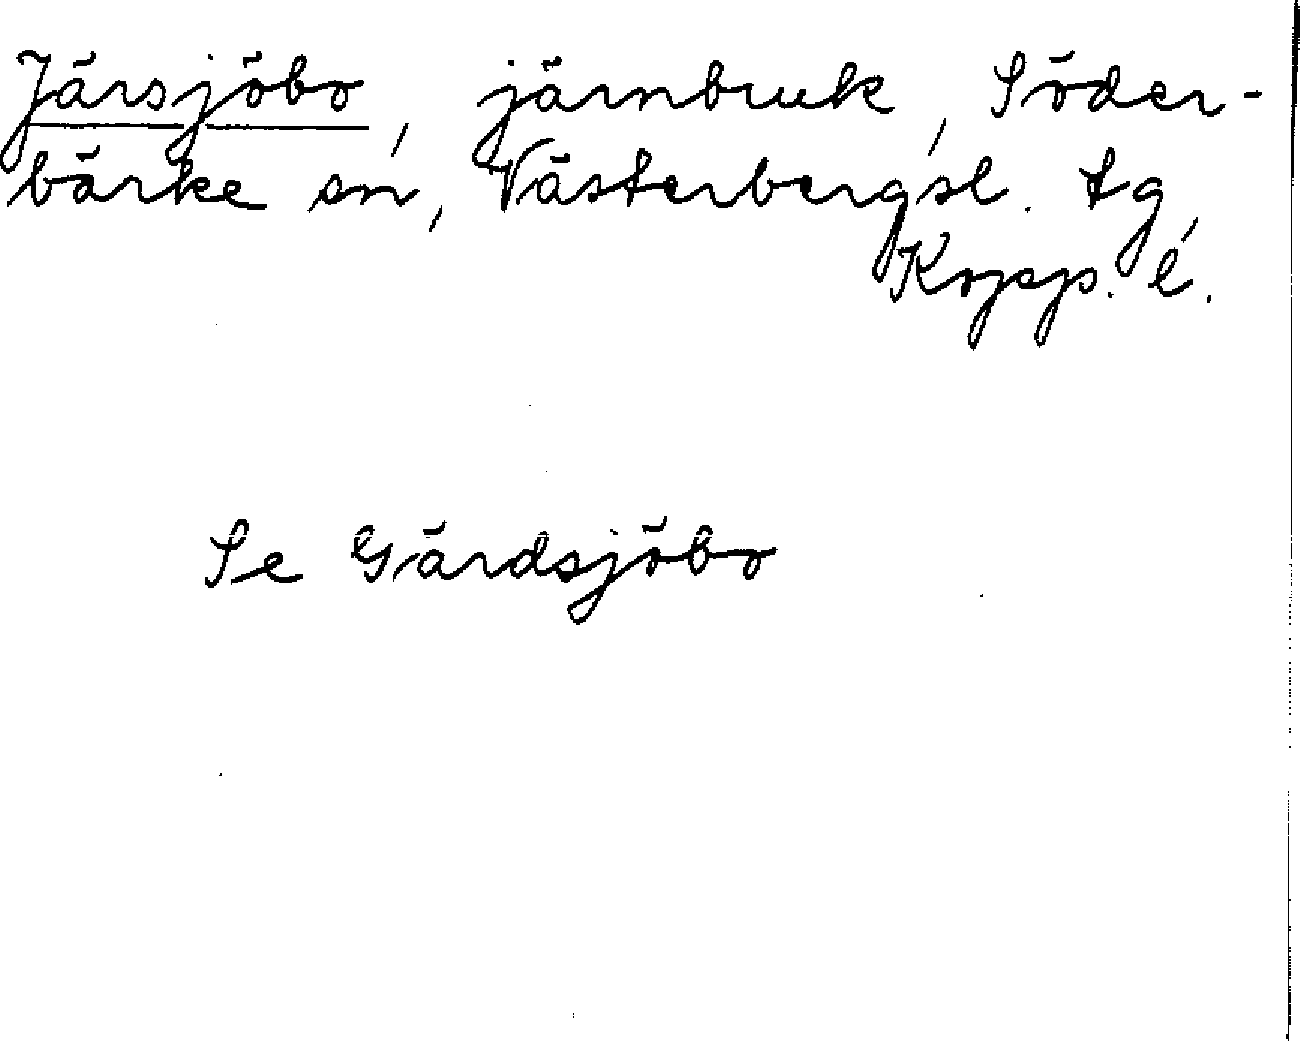 Järsjöbo, järnbruk, Söder-
bärke sn, Västerbergsl. tg,
Kopp. l.
Se Gärdsjöbo